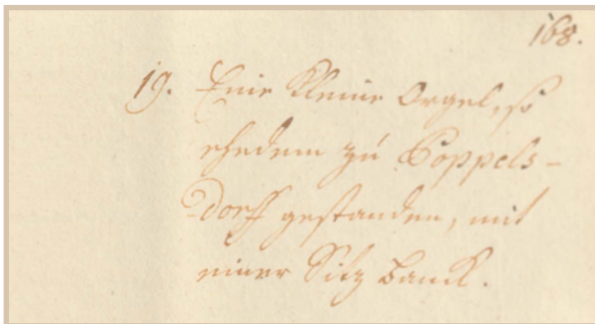 168.
19. Eine kleine Orgel, so
ehedem zu Poppels-
dorff gestanden, mit
einer Sitz banck.